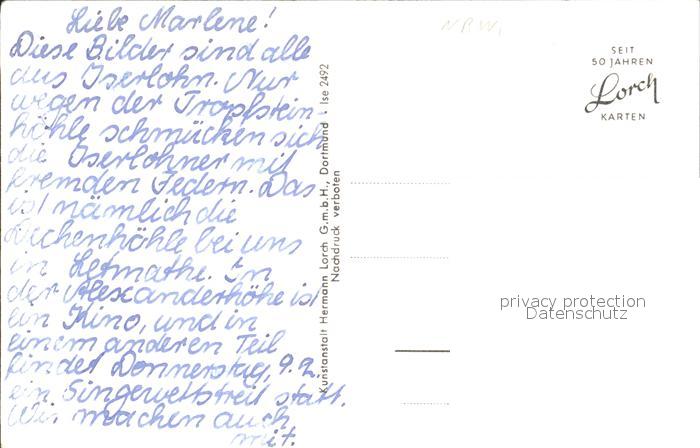 Liebe Marlene!
Diese Bilder sind alle
aus Iserlohn. Nur
wegen der Tropfstein-
höhle schmücken sich
die Iserlohner mit
fremden Federn. Das
ist nämlich die
Dechenhöhle bei uns
in Letmathe. In
der Alexanderhöhe ist
ein Kino, und in
einem anderen Teil
findet Donnerstag, 9.2.
ein Singewettstreit statt.
Wir machen auch
mit.
Kunstanstalt Hermann Lorch G.m.b.H., Dortmund · Ise 2492
Nachdruck verboten
NRW,
SEIT
50 JAHREN
Lorch
KARTEN
privacy protection
Datenschutz